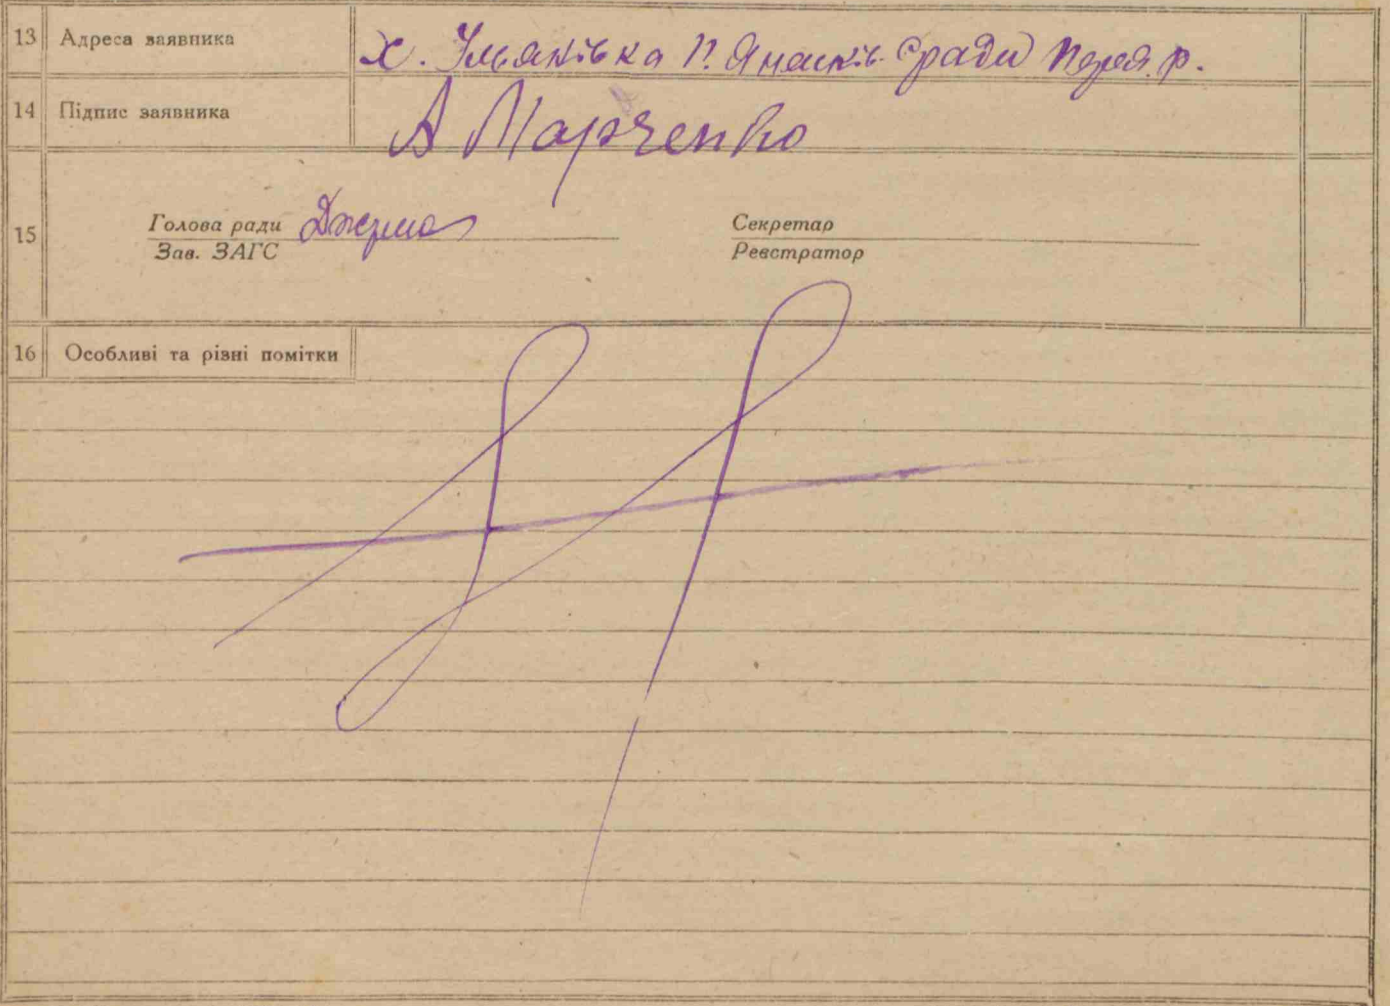 13 Адреса заявника х. Ульянівка П. Яненків с/ради Перея. р.
14 Підпис заявника А Марченко
15 Голова ради Секретар
Зав. ЗАГС Реєстратор
16 Особливі та різні помітки